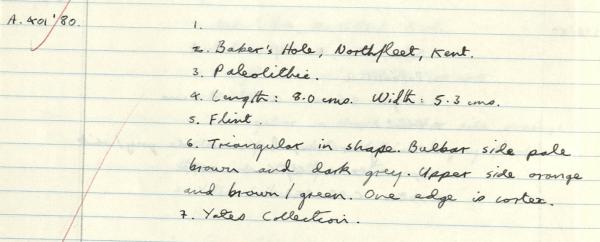 A.401'80.
1.
2. Baker's Hole, Northfleet, Kent.
3. Paleolithic.
4. Length: 8.0 cms. Width: 5.3 cms.
5. Flint.
6. Triangular in shape. Bulbar side pale
brown and dark grey. Upper side orange
and brown/green. One edge is cortex.
7. Yates Collection.